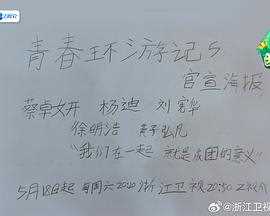 青春环游记5
官宣海报
蔡卓妍 杨迪 刘宪华
徐明浩 黄子弘凡
"我们在一起 就是众团的意义"
5月18日起 每周六20:20 浙江卫视20:30 Z视介
@浙江卫视